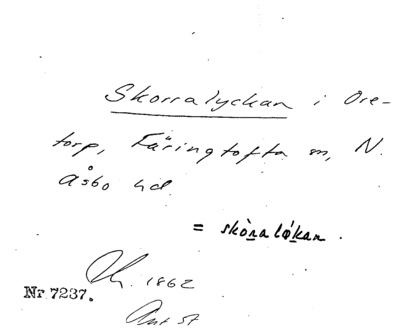 Skorralyckan i Ore-
torp, Färingtofta sn, N.
Åsbo hd
= skòṉalø̱kan.
1862
Nr 7237.
Ant